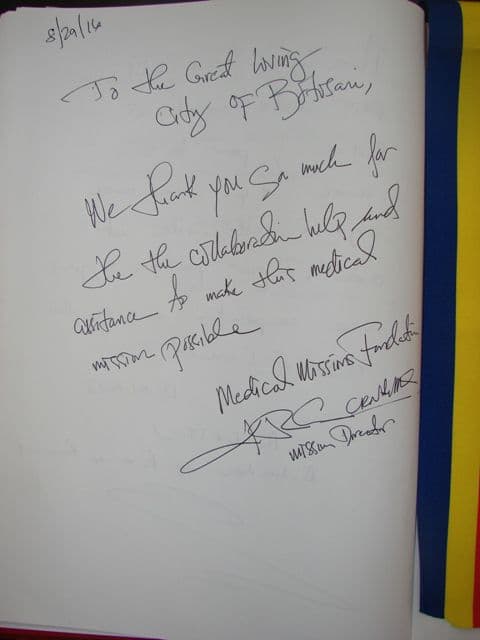 8/29/16
To the Great Living
City of Botosani,
We thank you so much for
the the collaboration help and
assistance to make this medical
mission possible
Medical Missions Foundation
CRNA, MAE
Mission Director